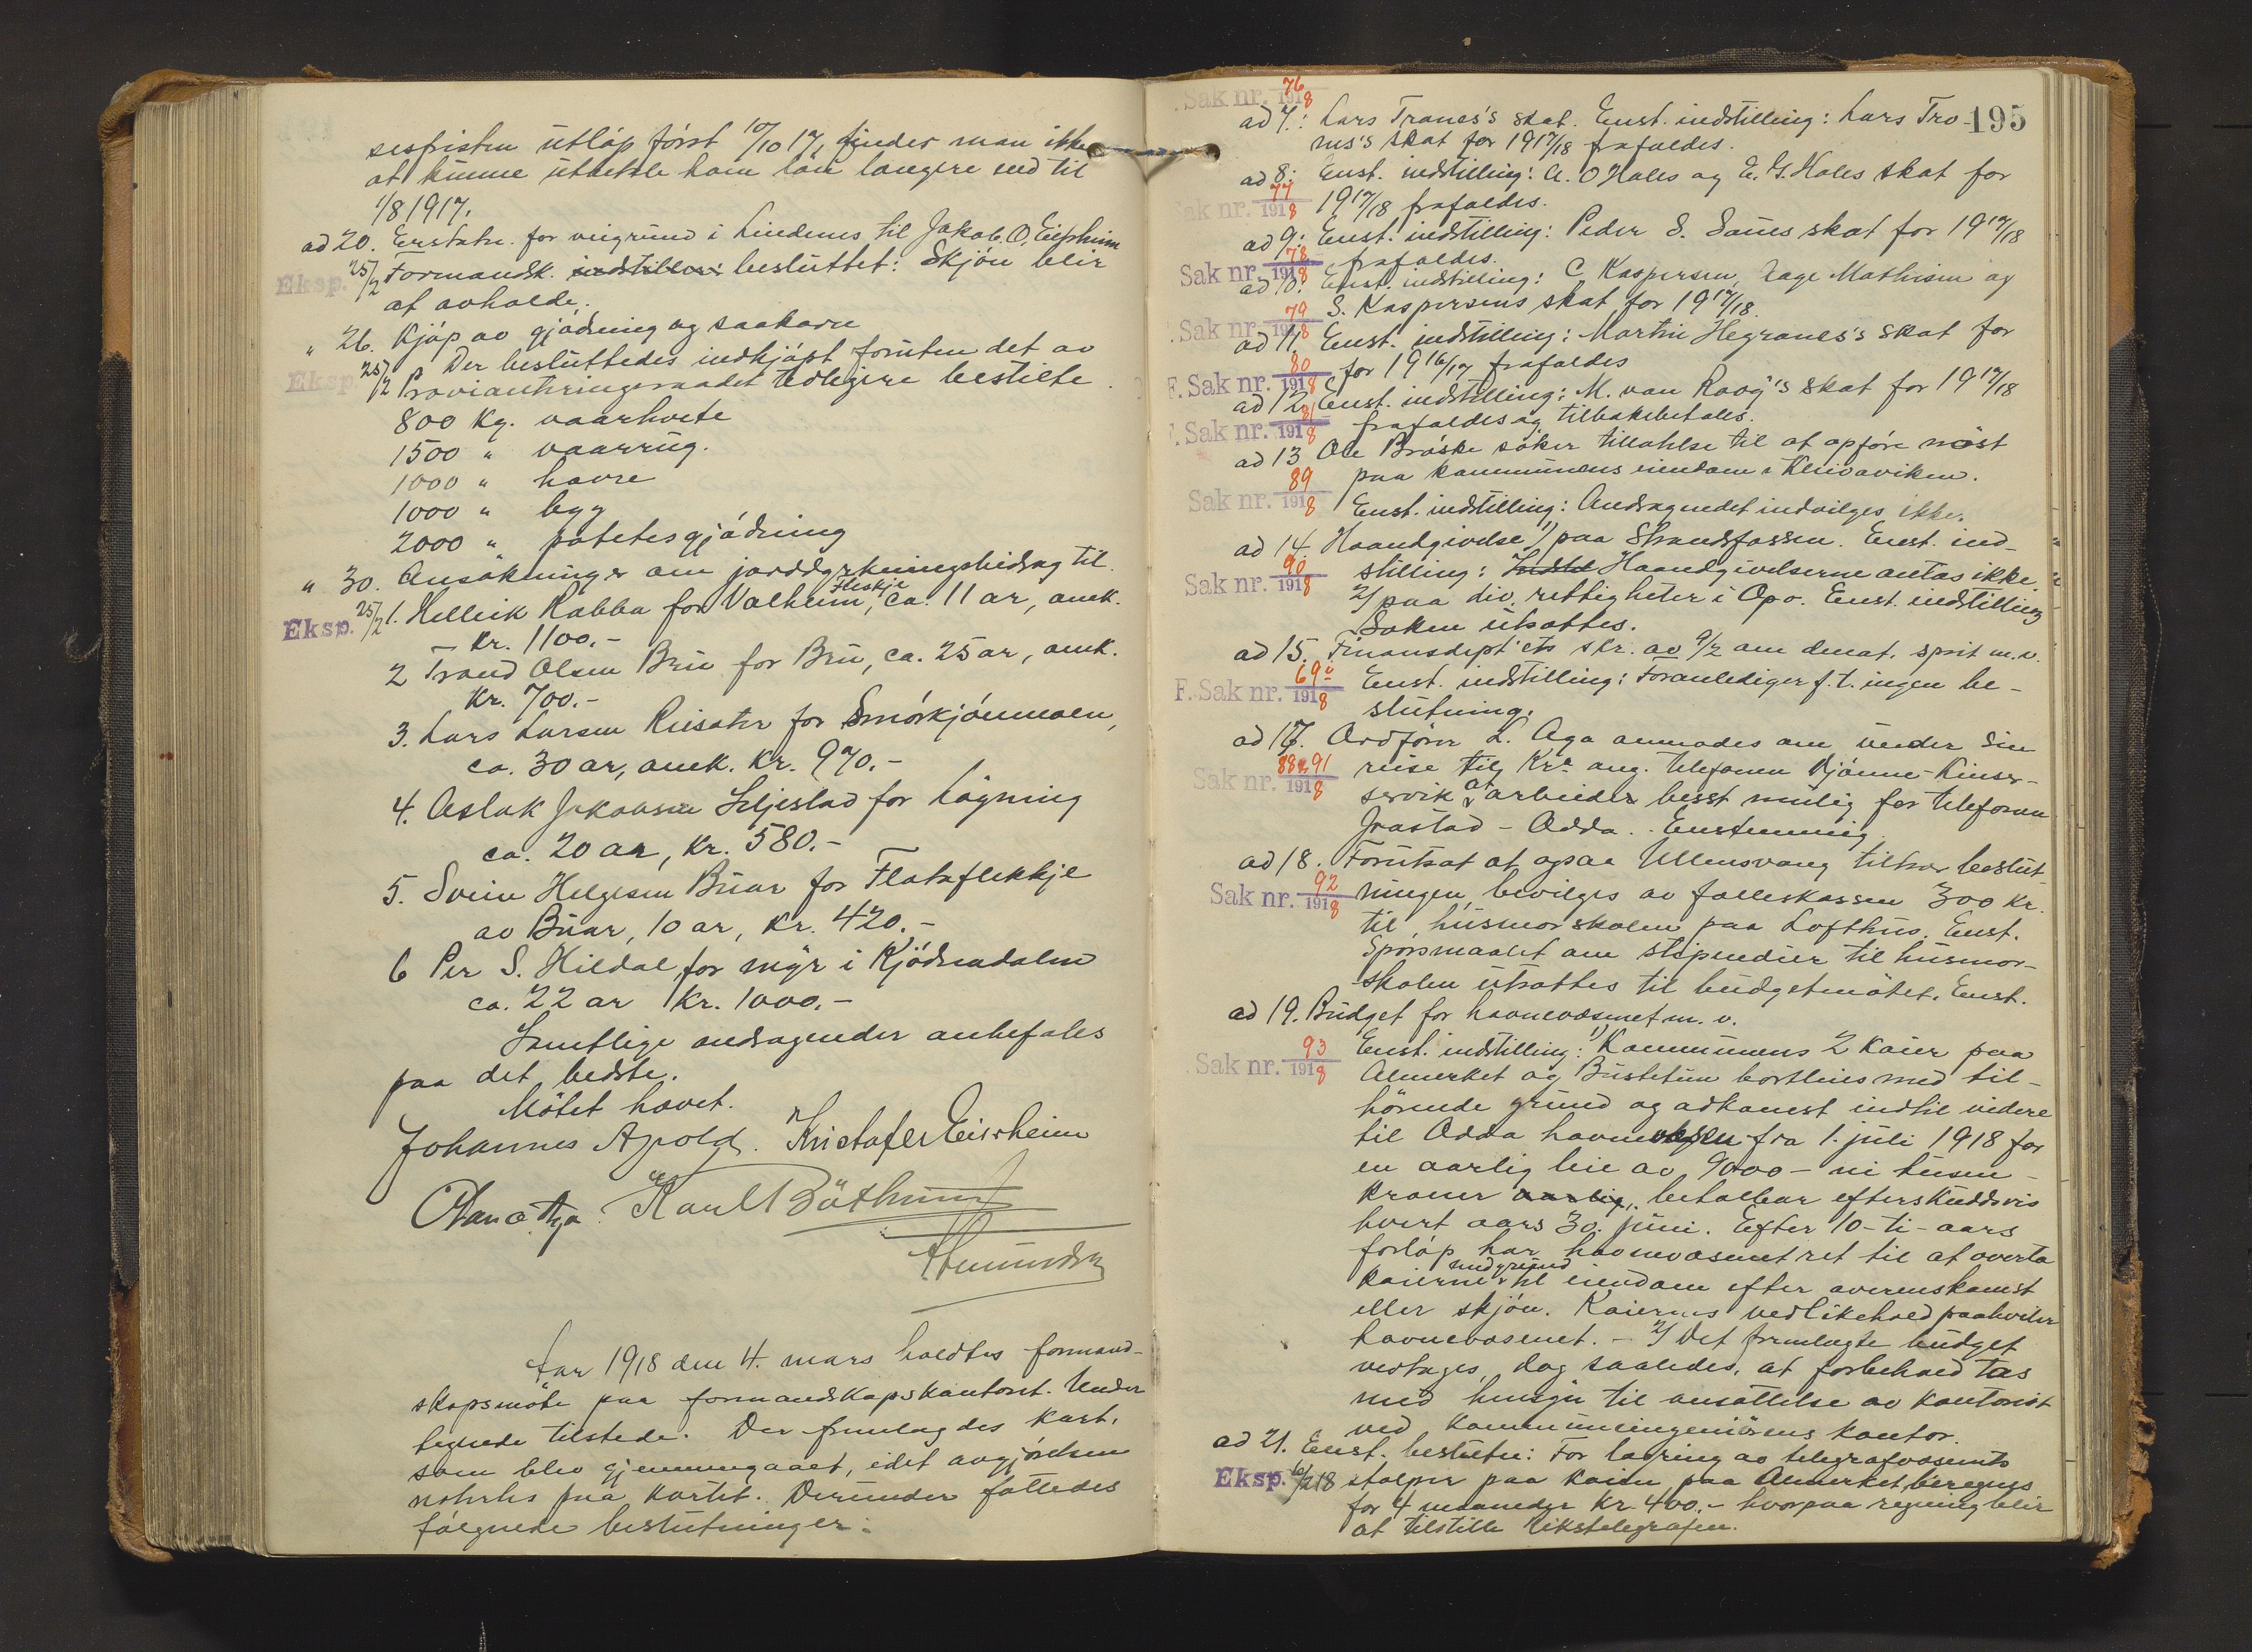 sesfristen utløp først 10/10 17, finder man ikke
at kunne utbetale ham løn længere end til
1/8 1917.
ad 20. Erstatn. for veigrund i Lindenes til Jakob O. Eitrheim
Eksp. 25/2 Formandsk. indstiller: besluttet: Skjøn blir
at avholde.
" 26. Kjøp av gjødning og saakorn
Der besluttedes indkjøpt foruten det av
Eksp. 25/2 Provianteringsraadet tidligere bestilte
800 kg. vaarhvete
1500 " vaarrug.
1000 " havre
1000 " byg
2000 " potetesgjødning
" 30. Ansøkninger om jorddyrkningsbidrag til.
Eksp. 25/2 1. Hellik Rabba for Valheim, Fleskje ca. 11 ar, ansk.
– kr. 1100.–
2 Trond Olsen Bru for Bru, ca. 25 ar, ansk.
Kr. 700.–
3. Lars Larsen Risæter for Smørkjønmoen,
ca. 30 ar, ansk. Kr. 970.–
4. Aslak Jakobsen Seljestad for Løyning
ca. 20 ar, Kr. 580.–
5. Svein Helgesen Buar for Flataflekkje
av Buar, 10 ar, Kr. 420.–
6 Per S. Hildal for myr i Kjødnadalen
ca. 22 ar Kr. 1000.–
Samtlige andragender anbefales
paa det bedste.
Møtet hævet.
Johannes Apold. Kristofer Eitrheim
Olav O. Aga. Karl Bøthun
Amundsen
Aar 1918 den 4. mars holdtes formand-
skapsmøte paa formandskapskontoret. Under-
tegnede tilstede. Der fremlagdes kart.
som blev gjennemgaaet, idet avgjørelsen
noteres paa kartet. Derunder fattedes
følgende beslutninger:
195
Sak nr. 76 1918
ad 7.: Lars Tranes's skat. Enst. indstilling: Lars Tro-
nes's skat for 1917/18 frafaldes.
ad 8: Enst. indstilling: A. O Hales og E. G. Hales skat for
Sak nr. 77 1918 1917/18 frafaldes.
ad 9: Enst. indstilling: Peder S. Saues skat for 1917/18
Sak nr. 78 1918 frafaldes.
ad 10. Enst. indstilling: C. Kaspersen, Aage Mathisen og
Sak nr. 79 1918 S. Kaspersens skat for 1917/18.
ad 11. Enst. indstilling: Martin Hegranes's skat for
F. Sak nr. 80 1918 for 1916/17 frafaldes
ad 12. Enst. indstilling: M. van Rooy's skat for 1917/18
F. Sak nr. 81 1918 frafaldes og tilbakebetales.
ad 13 Ole Bråske søker tillatelse til at opføre nøst
Sak nr. 89 1918 paa kommunens eiendom i Kleivaviken.
Enst. indstilling: Andragendet indvilges ikke.
ad 14. Haandgivelse 1) paa Strandfossen. Enst. ind-
Sak nr. 90 1918 stilling: Indstil Haandgivelserne antas ikke.
2) paa div. rettigheter i Opo. Enst. indstilling
Saken utsættes.
ad 15. Finansdept'ets skr. av 9/2 om denat. sprit m.v.
F. Sak nr. 69a 1918 Enst. indstilling: Foranlediger f. t. ingen be-
slutning.
ad 17. Ordfører L. Aga anmodes om under sin
Sak nr. 88 & 91 1918 reise til Kra ang. telefonen Djønne-Kinser-
servik at arbeider besst mulig for telefonen
Jrastad - Odda. Enstemmig.
ad 18. Forutsat at ogsaa Ullensvang tiltrær beslut-
Sak nr. 92 1918 ningen, bevilges av fælleskassen 300 kr.
til husmorskolen paa Lofthus. Enst.
Spørsmaalet om stipendier til husmor-
skolen utsættes til budgetmøtet. Enst.
ad 19. Budget for havnevæsenet m. v.
Sak nr. 93 1918 Enst. indstilling: 1) Kommunens 2 kaier paa
Almerket og Bustetun bortleies med til-
hørende grund og adkomst indtil videre
til Odda havnevæsen fra 1. juli 1918 for
en aarlig leie av 9000 – ni tusen –
kroner aarlig, betalbar efterskuddsvis
hvert aars 30. juni. Efter 10-ti-aars
forløp har havnevæsenet ret til at overta
kaierne med grund til eiendom efter overenskomst
eller skjøn. Kaiernes vedlikehold paahviler
havnevæsenet. – 2) Det fremlagte budget
vedtages, dog saaledes, at forbehold tas
med hensyn til ansættelse av kontorist
ved kommuneingeniørens kontor.
ad 21. Enst. beslutn.: For lagring av telegrafvæsenets
Eksp. 6/3 18 stolper paa kaien paa Almerket beregnes
for 4 maaneder kr. 400.– hvorpaa regning blir
at tilstille Rikstelegrafen.